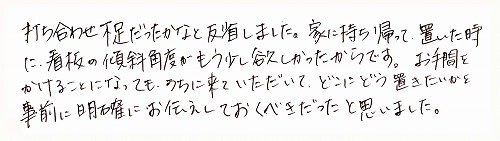 打ち合わせ不足だったかなと反省しました。家に持ち帰って、置いた時
に、看板の傾斜角度がもう少し欲しかったからです。お手間を
かけることになっても、うちに来ていただいて、どこにどう置きたいかを
事前に明確にお伝えしておくべきだったと思いました。